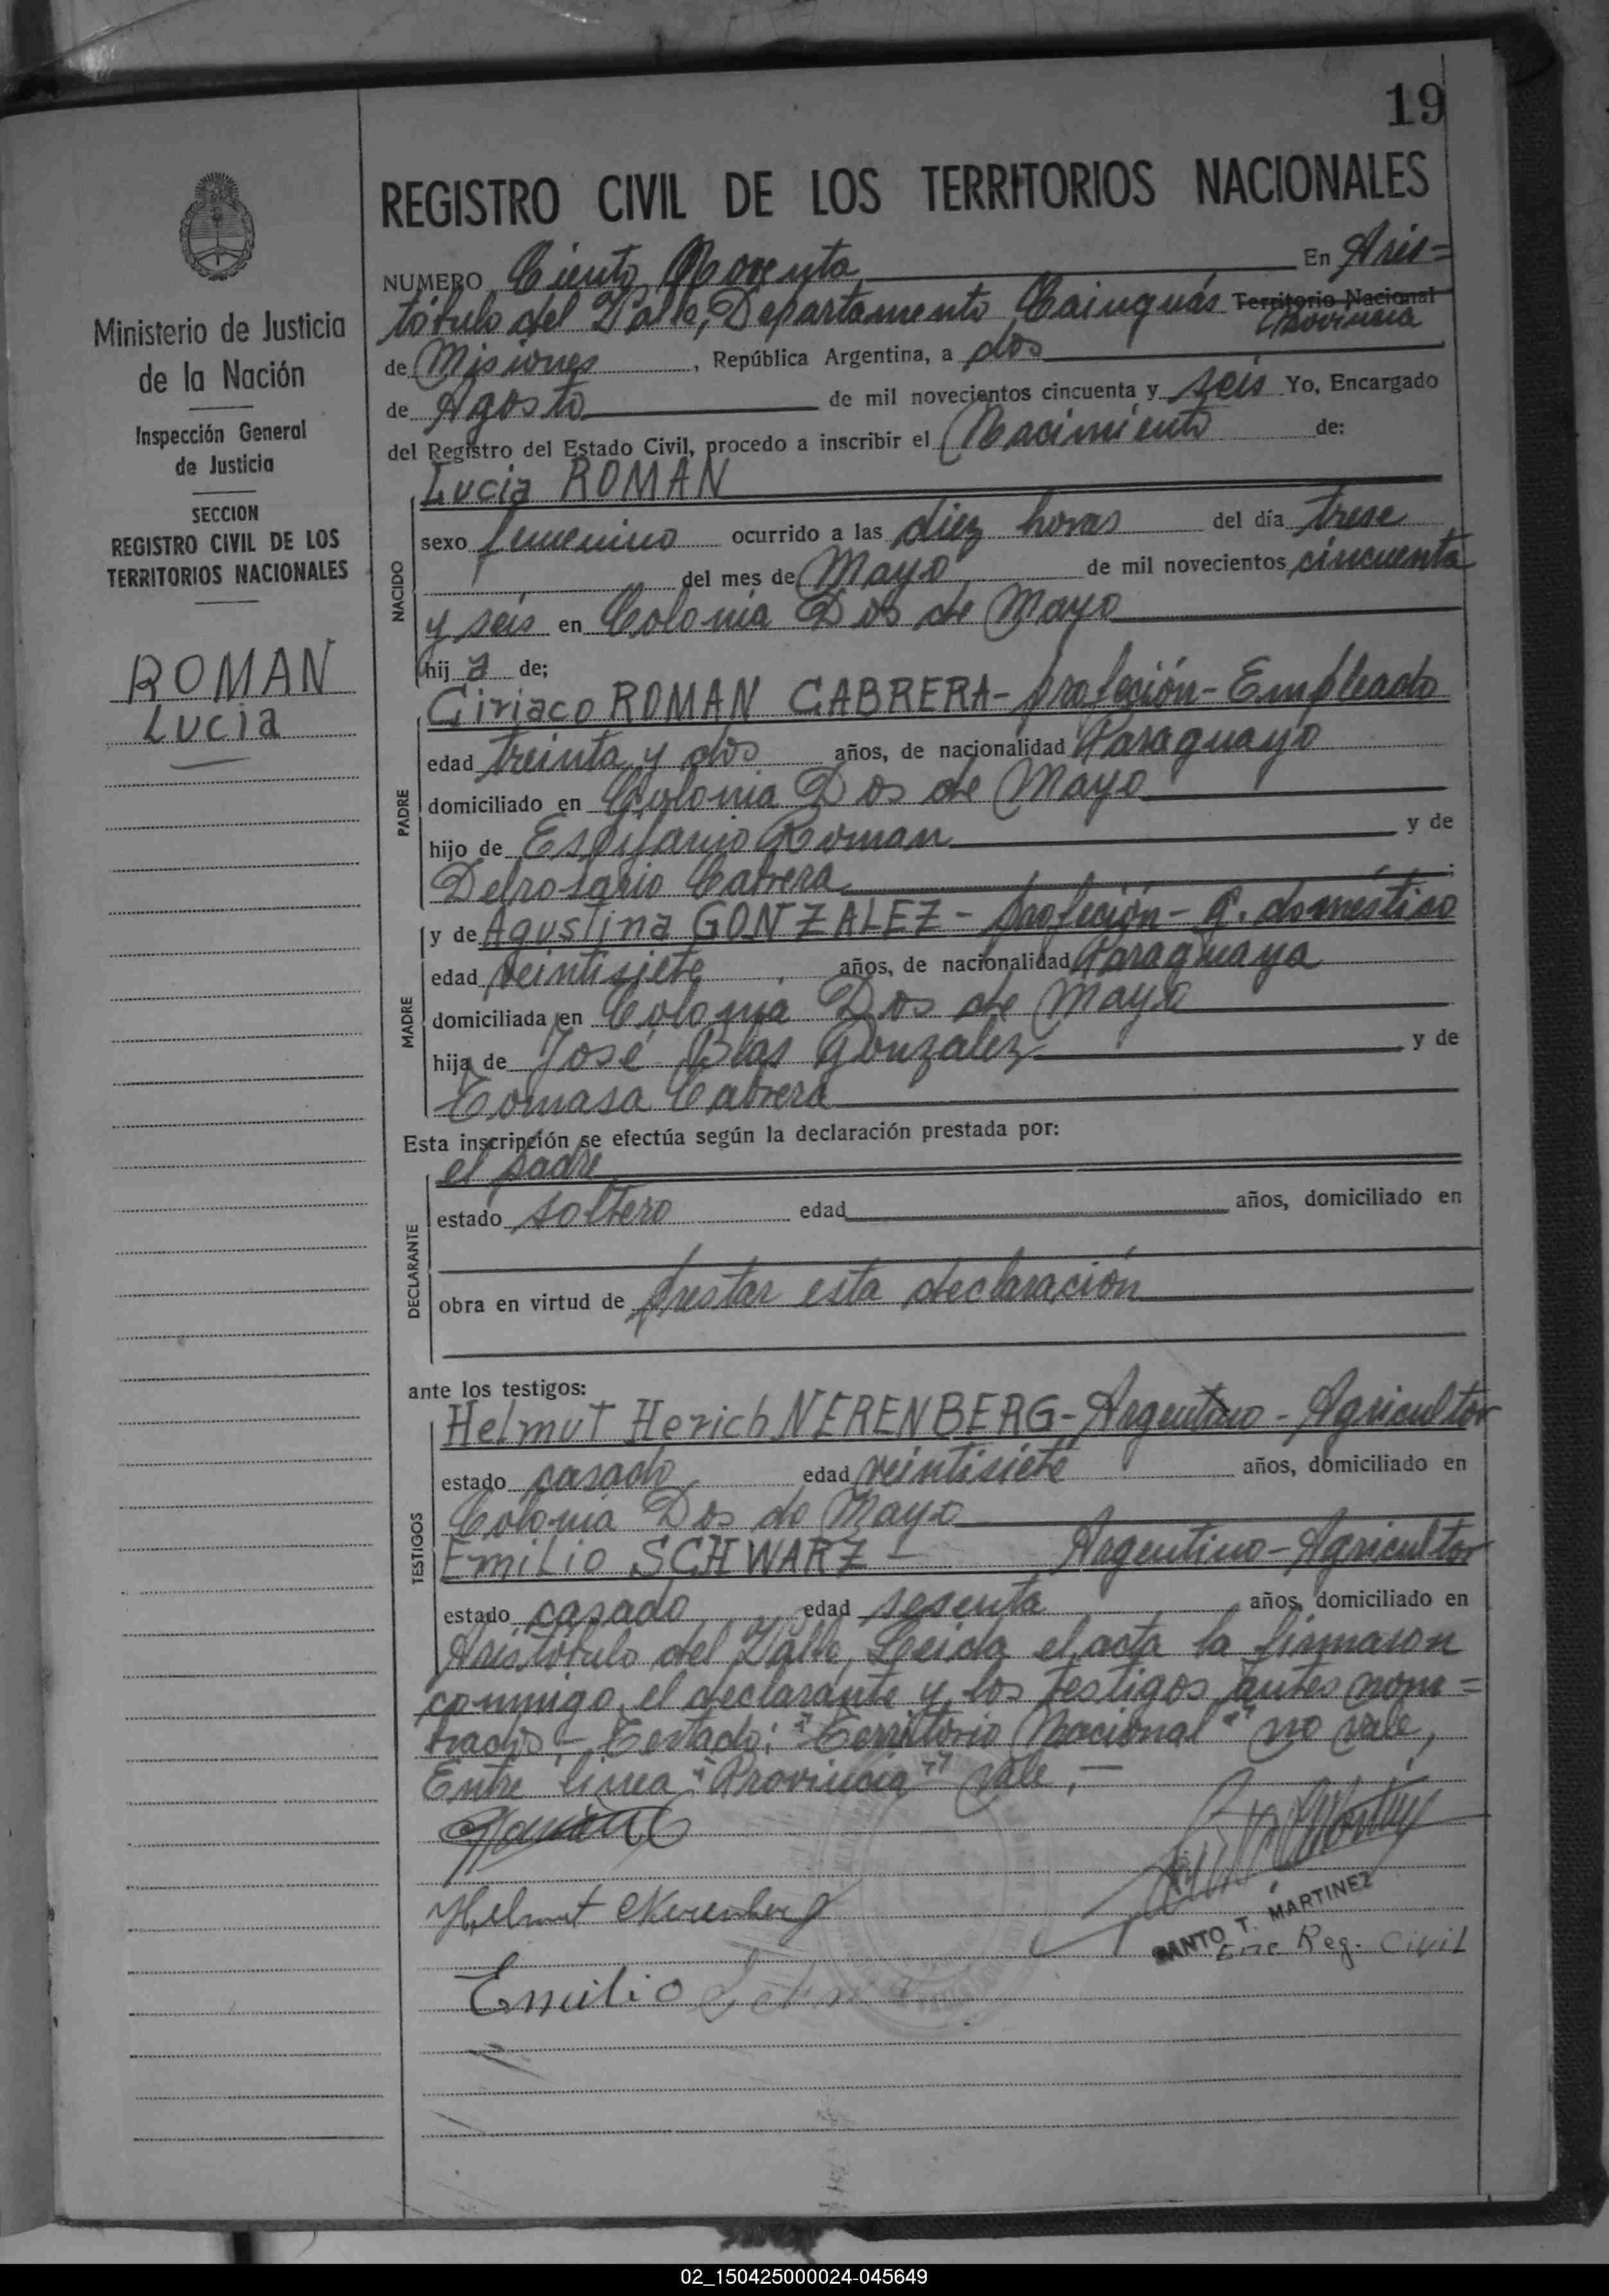 19
REGISTRO CIVIL DE LOS TERRITORIOS NACIONALES
Ministerio de Justicia
de la Nación
Inspección General
de Justicia
SECCION
REGISTRO CIVIL DE LOS
TERRITORIOS NACIONALES
ROMAN
Lucia
NUMERO Ciento Noventa En Aris=
tóbulo del Valle, Departamento Cainguás Territorio Nacional
Provincia
de Misiones, República Argentina, a dos
de Agosto de mil novecientos cincuenta y seis Yo, Encargado
del Registro del Estado Civil, procedo a inscribir el Nacimiento de:
NACIDO
Lucia ROMAN
sexo femenino ocurrido a las diez horas del día trese
del mes de Mayo de mil novecientos cincuenta
y seis en Colonia Dos de Mayo
hij a de;
PADRE
Ciriaco ROMAN CABRERA- profeción- Empleado
edad treinta y dos años, de nacionalidad Paraguayo
domiciliado en Colonia Dos de Mayo
hijo de Roman y de
Delrosario Cabrera
MADRE
y de Agustina GONZALEZ - profeción - q. doméstico
edad veintisiete años, de nacionalidad Paraguaya
domiciliada en Colonia Dos de Mayo
hija de José Blas Gonzalez y de
Tomasa Cabrera
Esta inscripción se efectúa según la declaración prestada por:
DECLARANTE
el padre
estado soltero edad años, domiciliado en
obra en virtud de prestar esta declaración
ante los testigos:
TESTIGOS
Helmut Herich NERENBERG- Argentino - Agricultor
estado casado edad veintisiete años, domiciliado en
Colonia Dos de Mayo
Emilio SCHWARZ - Argentino - Agricultor
estado casado edad sesenta años, domiciliado en
Aristóbulo del Valle, Leida el acta la firmaron
conmigo, el declarante y los testigos antes nom=
brados.- Testado: "Territorio Nacional" no vale,
Entre linea "Provincia" vale.-
Helmut Nerenberg
SANTO T. MARTINEZ
Enc Reg. Civil
Emilio
02_150425000024-045649